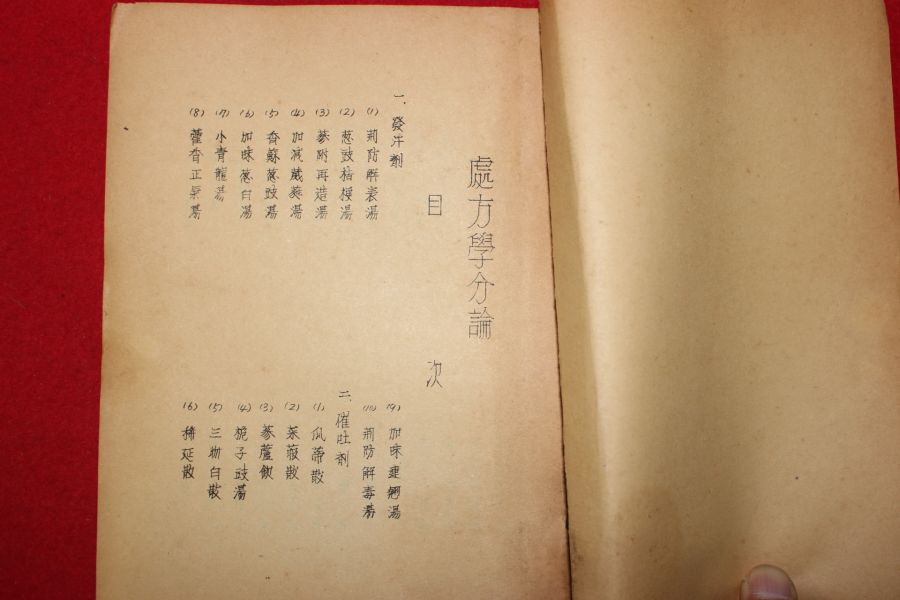 處方學分論
目 次
一、發汗劑
(1) 荊防解表湯
(2) 葱豉桔梗湯
(3) 蔘附再造湯
(4) 加减葳蕤湯
(5) 香蘇葱豉湯
(6) 加味葱白湯
(7) 小青龍湯
(8) 藿香正氣湯
(9) 加味連翹湯
(10) 荊防解毒湯
二、催吐劑
(1) 瓜蒂散
(2) 散
(3) 蔘蘆飲
(4) 梔子豉湯
(5) 三物白散
(6) 稀涎散